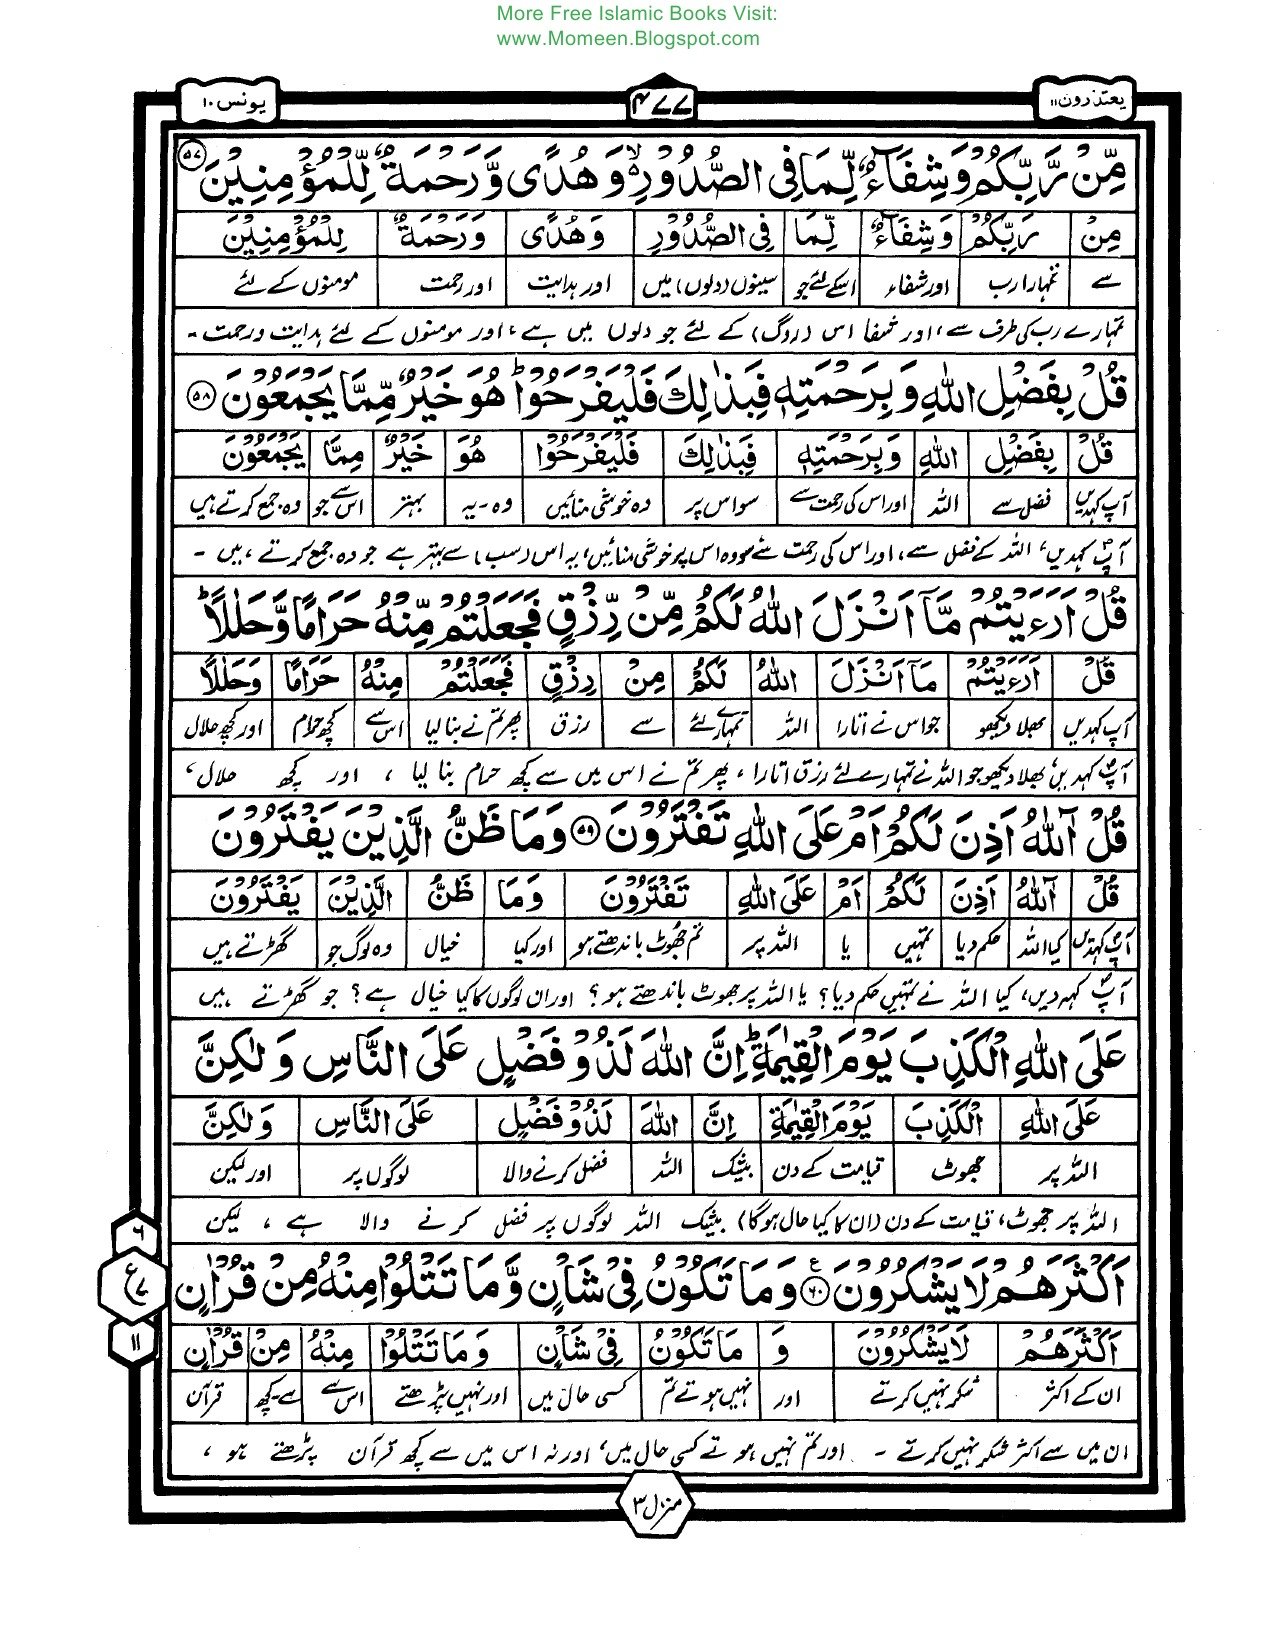 More Free Islamic Books Visit:
www.Momeen.Blogspot.com
یعتذرون ۱۱
۴۷۷
یونس ۱۰
مِّنْ رَّبِّكُمْ وَشِفَآءٌ لِّمَا فِى الصُّدُوْرِ ۙ وَهُدًى وَّرَحْمَةٌ لِّلْمُؤْمِنِيْنَ ۵۷
مِنْ رَبِّكُمْ وَشِفَآءٌ لِّمَا فِى الصُّدُوْرِ وَهُدًى وَرَحْمَةٌ لِلْمُؤْمِنِيْنَ
سے تمہارا رب اور شفاء اسکے لئے جو سینوں (دلوں) میں اور ہدایت اور رحمت مومنوں کے لئے
تمہارے رب کی طرف سے، اور شفا اس (روگ) کے لئے جو دلوں میں ہے، اور مومنوں کے لئے ہدایت و رحمت ۔
قُلْ بِفَضْلِ اللّٰهِ وَبِرَحْمَتِهٖ فَبِذٰلِكَ فَلْيَفْرَحُوْا ؕ هُوَ خَيْرٌ مِّمَّا يَجْمَعُوْنَ ۵۸
قُلْ بِفَضْلِ اللّٰهِ وَبِرَحْمَتِهٖ فَبِذٰلِكَ فَلْيَفْرَحُوْا هُوَ خَيْرٌ مِمَّا يَجْمَعُوْنَ
آپ کہدیں فضل سے اللہ اور اس کی رحمت سے سو اس پر وہ خوشی منائیں وہ۔یہ بہتر اس سے جو وہ جمع کرتے ہیں
آپؐ کہدیں، اللہ کے فضل سے، اور اس کی رحمت سے سو وہ اس پر خوشی منائیں، یہ اس (سب) سے بہتر ہے جو وہ جمع کرتے ہیں ۔
قُلْ اَرَءَيْتُمْ مَّآ اَنْزَلَ اللّٰهُ لَكُمْ مِّنْ رِّزْقٍ فَجَعَلْتُمْ مِّنْهُ حَرَامًا وَّحَلٰلًا ؕ
قُلْ اَرَءَيْتُمْ مَآ اَنْزَلَ اللّٰهُ لَكُمْ مِنْ رِزْقٍ فَجَعَلْتُمْ مِنْهُ حَرَامًا وَحَلٰلًا
آپ کہدیں بھلا دیکھو جو اس نے اتارا اللہ تمہارے لئے سے رزق پھر تم نے بنا لیا اس سے کچھ حرام اور کچھ حلال
آپؐ کہدیں بھلا دیکھو جو اللہ نے تمہارے لئے رزق اتارا، پھر تم نے اس میں سے کچھ حرام بنا لیا، اور کچھ حلال،
قُلْ آٰللّٰهُ اَذِنَ لَكُمْ اَمْ عَلَى اللّٰهِ تَفْتَرُوْنَ ۵۹ وَمَا ظَنُّ الَّذِيْنَ يَفْتَرُوْنَ
قُلْ آٰللّٰهُ اَذِنَ لَكُمْ اَمْ عَلَى اللّٰهِ تَفْتَرُوْنَ وَمَا ظَنُّ الَّذِيْنَ يَفْتَرُوْنَ
آپ کہدیں کیا اللہ حکم دیا تمہیں یا اللہ پر تم جھوٹ باندھتے ہو اور کیا خیال وہ لوگ جو گھڑتے ہیں
آپؐ کہہ دیں، کیا اللہ نے تمہیں حکم دیا؟ یا اللہ پر جھوٹ باندھتے ہو؟ اور ان لوگوں کا کیا خیال ہے؟ جو گھڑتے ہیں
عَلَى اللّٰهِ الْكَذِبَ يَوْمَ الْقِيٰمَةِ ؕ اِنَّ اللّٰهَ لَذُوْ فَضْلٍ عَلَى النَّاسِ وَلٰكِنَّ
عَلَى اللّٰهِ الْكَذِبَ يَوْمَ الْقِيٰمَةِ اِنَّ اللّٰهَ لَذُوْ فَضْلٍ عَلَى النَّاسِ وَلٰكِنَّ
اللہ پر جھوٹ قیامت کے دن بیشک اللہ فضل کرنے والا لوگوں پر اور لیکن
اللہ پر جھوٹ، قیامت کے دن (ان کا کیا حال ہوگا) بیشک اللہ لوگوں پر فضل کرنے والا ہے، لیکن
اَكْثَرَهُمْ لَا يَشْكُرُوْنَ ۶۰ ع وَمَا تَكُوْنُ فِىْ شَاْنٍ وَّمَا تَتْلُوْا مِنْهُ مِنْ قُرْاٰنٍ
اَكْثَرَهُمْ لَا يَشْكُرُوْنَ وَ مَا تَكُوْنُ فِىْ شَاْنٍ وَمَا تَتْلُوْا مِنْهُ مِنْ قُرْاٰنٍ
ان کے اکثر شکر نہیں کرتے اور نہیں ہوتے تم کسی حال میں اور نہیں پڑھتے اس سے سے۔کچھ قرآن
ان میں سے اکثر شکر نہیں کرتے ۔ اور تم نہیں ہوتے کسی حال میں، اور نہ اس میں سے کچھ قرآن پڑھتے ہو،
۶
ع ۷
۱۱
منزل ۳